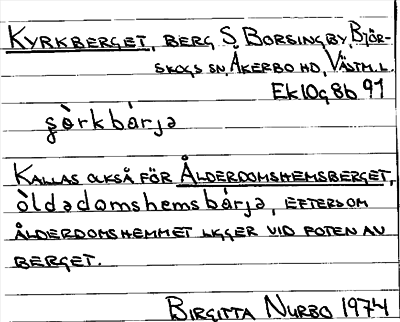 KYRKBERGET, BERG S BORSINGBY, BJÖR-
SKOGS SN, ÅKERBO HD, VÄSTM.L.
EK 10G 8b 97
șòrkbárjə
KALLAS OCKSÅ FÖR ÅLDERDOMSHEMSBERGET,
òldədomshemsbárjə, EFTERSOM
ÅLDERDOMSHEMMET LIGGER VID FOTEN AV
BERGET.
BIRGITTA NURBO 1974